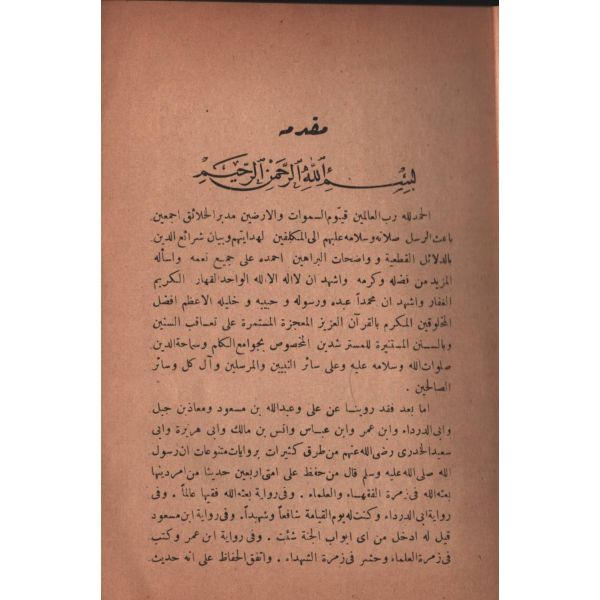 مقدمه
بسم الله الرحمن الرحيم
الحمد لله رب العالمين قيوم السموات والارضين مدبر الخلائق اجمعين
باعث الرسل صلاته وسلامه عليهم الى المكلفين لهدايتهم وبيان شرائع الدين
بالدلائل القطعية و واضحات البراهين احمده على جميع نعمه واسأله
المزيد من فضله وكرمه واشهد ان لااله الا الله الواحد القهار الكريم
الغفار واشهد ان محمداً عبده ورسوله و حبيبه و خليله الاعظم افضل
المخلوقين المكرم بالقرآن العزيز المعجزة المستمرة على تعاقب السنين
وبالسنن المستنيرة للمستر شدين المخصوص بجوامع الكلم وسماحة الدين
صلوات الله وسلامه عليه وعلى سائر النبيين والمرسلين وآل كل وسائر
الصالحين .
اما بعد فقد روينا عن على وعبدالله بن مسعود ومعاذ بن جبل
وابى الدرداء وابن عمر وابن عباس وانس بن مالك وابى هريرة وابى
سعيد الخدرى رضى الله عنهم من طرق كثيرات بروايات متنوعات ان رسول
الله صلى الله عليه وسلم قال من حفظ على امتى اربعين حديثا من امر دينها
بعثه الله فى زمرة الفقهاء والعلماء . وفى رواية بعثه الله فقيها عالماً . وفى
رواية ابى الدرداء وكنت له يوم القيامة شافعاً وشهيداً. وفى رواية ابن مسعود
قيل له ادخل من اى ابواب الجنة شئت . وفى رواية ابن عمر وكتب
فى زمرة العلماء وحشر فى زمرة الشهداء . واتفق الحفاظ على انه حديث